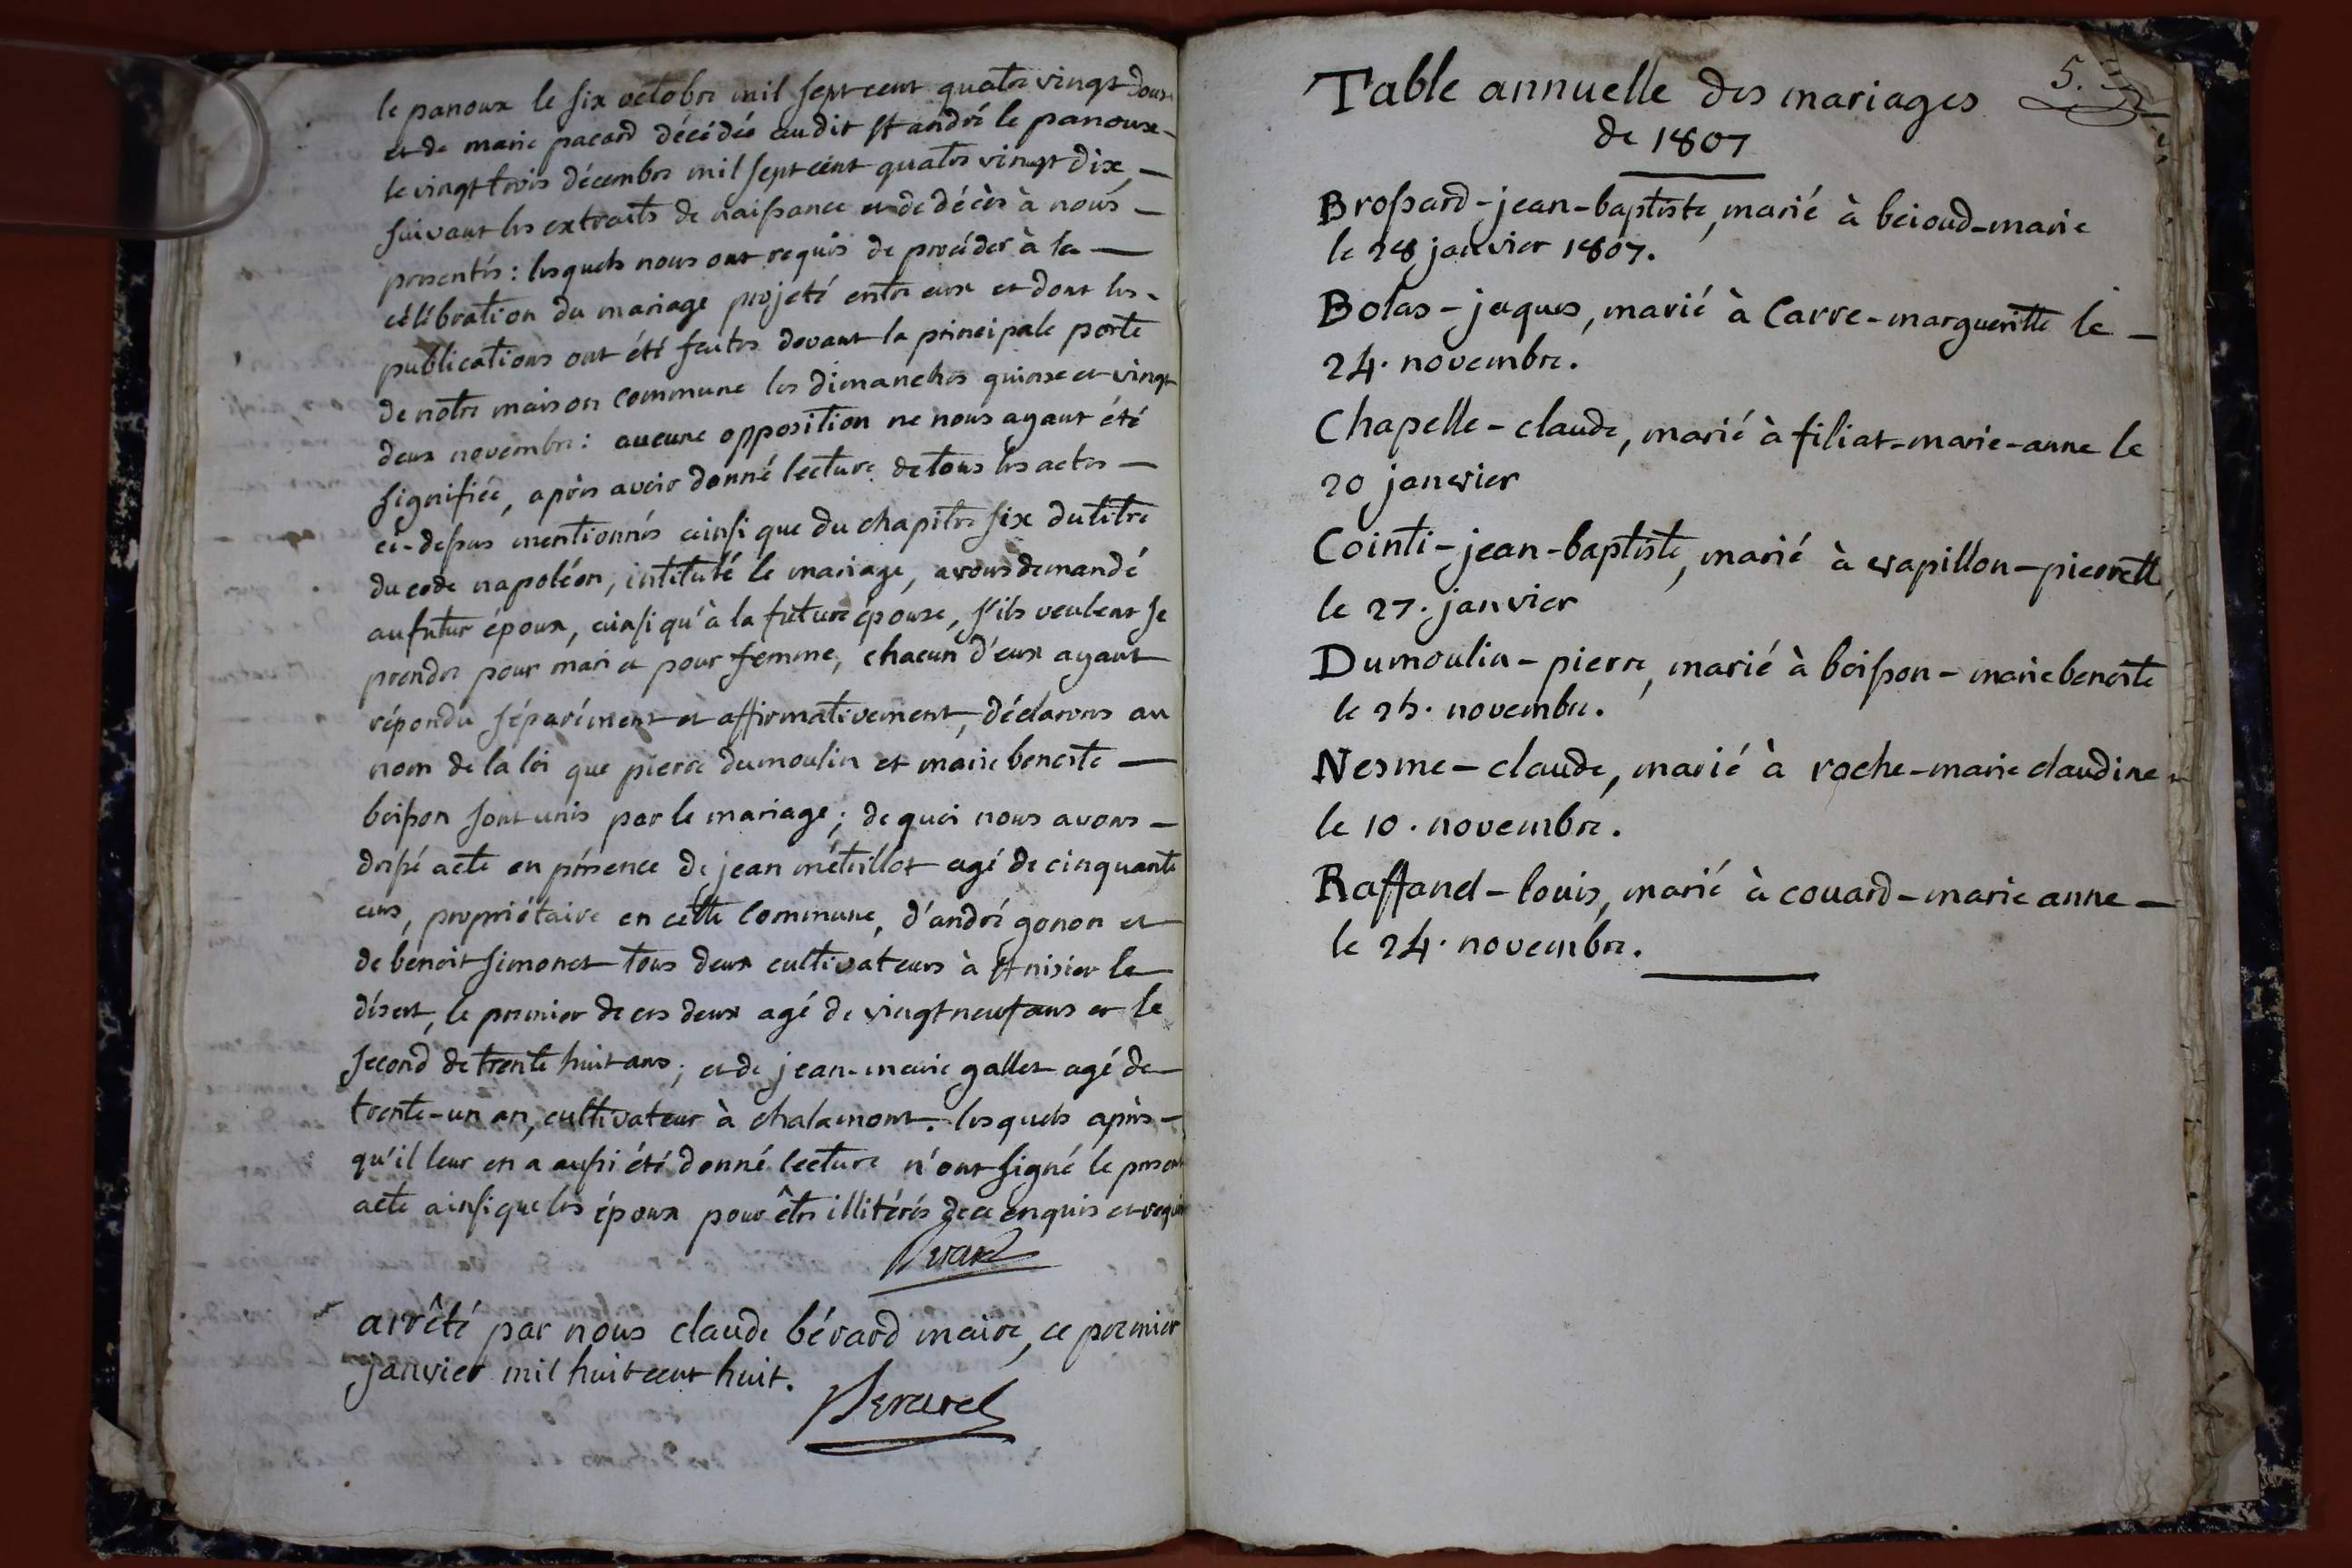 le panoux le six octobre mil sept cent quatre vingt douse
et de marie pacard décédée audit st andré le panoux —
le vingt trois décembre mil sept cent quatre vingt dix, —
suivant les extraits de naissance et de décès à nous —
presentés : lesquels nous ont requis de procéder à la —
célébration du mariage projeté entre eux et dont les -
publications ont été faites devant la principale porte
de notre maison commune les dimanches quinse et vingt
deux novembre : aucune opposition ne nous ayant été
signifiée, après avoir donné lecture de tous les actes —
ci-dessus mentionnés ainsi que du chapitre six du titre
du code napoléon, intitulé le mariage, avons demandé
au futur époux, ainsi qu'à la future épouse, s'ils veulent se
prendre pour mari et pour femme, chacun d'eux ayant
répondu séparément et affirmativement, déclarons au
nom de la loi que pierre dumoulin et marie benoite —
boisson sont unis par le mariage ; de quoi nous avons —
dressé acte en présence de jean métrillot agé de cinquante
ans, propriétaire en cette commune, d'andré gonon et
de benoit simonet tous deux cultivateurs à st nisier le
désert, le premier de ces deux agé de vingt neuf ans et le
second de trente huit ans ; et de jean-marie gallet agé de
trente-un an, cultivateur à chalamont. lesquels après —
qu'il leur en a aussi été donné lecture n'ont signé le present
acte ainsi que les époux pour être illitérés de ce enquis et requis
Berard
arrêté par nous claude bérard maire, ce premier
janvier mil huit cent huit.
Berard
5.
Table annuelle des mariages
de 1807
Brossard-jean-baptiste, marié à beioud-marie
le 28 janvier 1807.
Bolas - jaques, marié à Carre-margueritte le —
24. novembre.
Chapelle - claude, marié à filiat-marie-anne le
20 janvier
Cointi-jean-baptiste, marié à vapillon-pierrette,
le 27. janvier
Dumoulin - pierre, marié à boisson - marie benoite
le 25. novembre.
Nesme - claude, marié à roche-marie claudine -
le 10. novembre.
Raffand - louis, marié à couard-marie anne —
le 24. novembre.